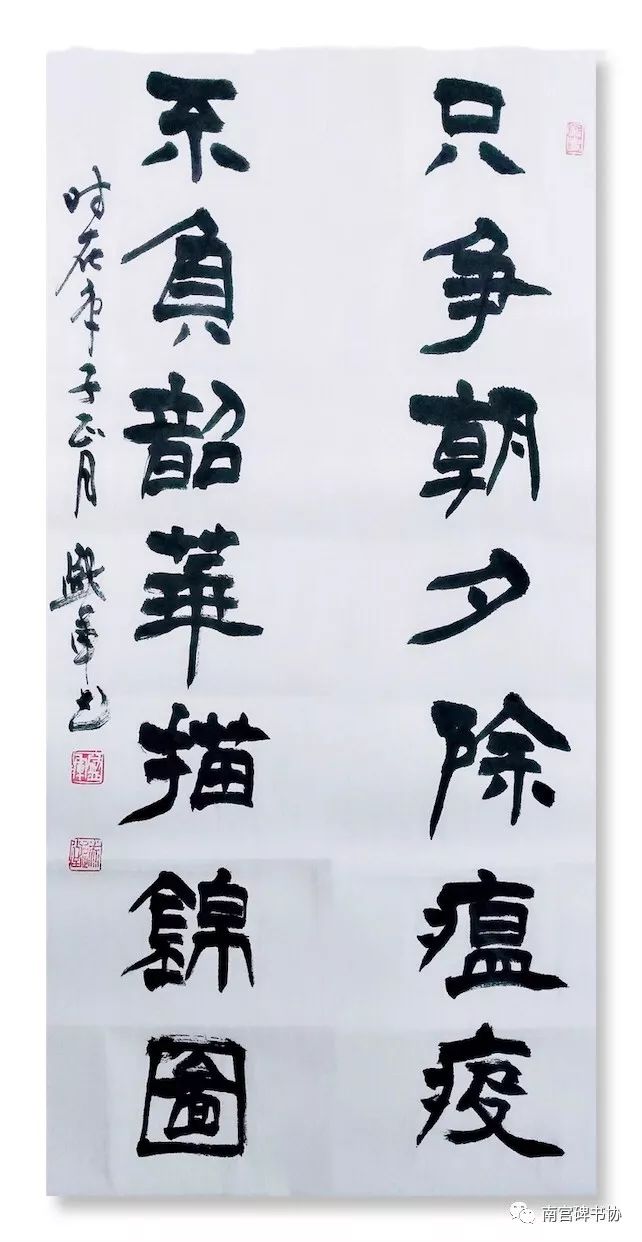 只争朝夕除瘟疫
不負韶華描錦圖
时在庚子正月 盛军书
南宫碑书协